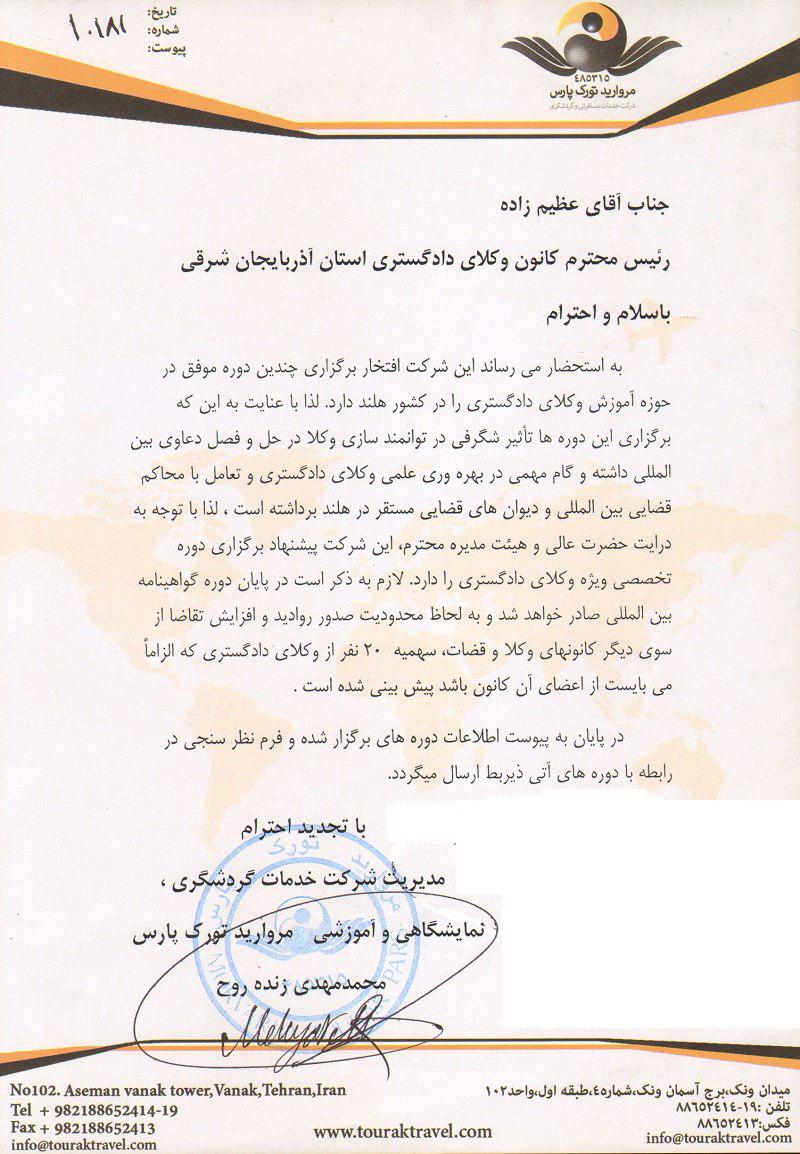 تاریخ:
شماره: ۱۰۱۸۱
پیوست:
٤٨٥٣١٥
مروارید تورک پارس
شرکت خدمات مسافرتی و گردشگری
جناب آقای عظیم زاده
رئیس محترم کانون وکلای دادگستری استان آذربایجان شرقی
باسلام و احترام
به استحضار می رساند این شرکت افتخار برگزاری چندین دوره موفق در
حوزه آموزش وکلای دادگستری را در کشور هلند دارد. لذا با عنایت به این که
برگزاری این دوره ها تأثیر شگرفی در توانمند سازی وکلا در حل و فصل دعاوی بین
المللی داشته و گام مهمی در بهره وری علمی وکلای دادگستری و تعامل با محاکم
قضایی بین المللی و دیوان های قضایی مستقر در هلند برداشته است ، لذا با توجه به
درایت حضرت عالی و هیئت مدیره محترم، این شرکت پیشنهاد برگزاری دوره
تخصصی ویژه وکلای دادگستری را دارد. لازم به ذکر است در پایان دوره گواهینامه
بین المللی صادر خواهد شد و به لحاظ محدودیت صدور روادید و افزایش تقاضا از
سوی دیگر کانونهای وکلا و قضات، سهمیه ۲۰ نفر از وکلای دادگستری که الزاماً
می بایست از اعضای آن کانون باشد پیش بینی شده است .
در پایان به پیوست اطلاعات دوره های برگزار شده و فرم نظر سنجی در
رابطه با دوره های آتی ذیربط ارسال میگردد.
با تجدید احترام
مدیریت شرکت خدمات گردشگری ،
نمایشگاهی و آموزشی مروارید تورک پارس
محمدمهدی زنده روح
No102. Aseman vanak tower,Vanak,Tehran,Iran
Tel + 982188652414-19
Fax + 982188652413
info@touraktravel.com
www.touraktravel.com
میدان ونک،برج آسمان ونک،شماره٤،طبقه اول،واحد۱۰۲
تلفن :۱۹-۸۸٦٥٢٤١٤
فکس:۸۸٦٥٢٤١٣
info@touraktravel.com